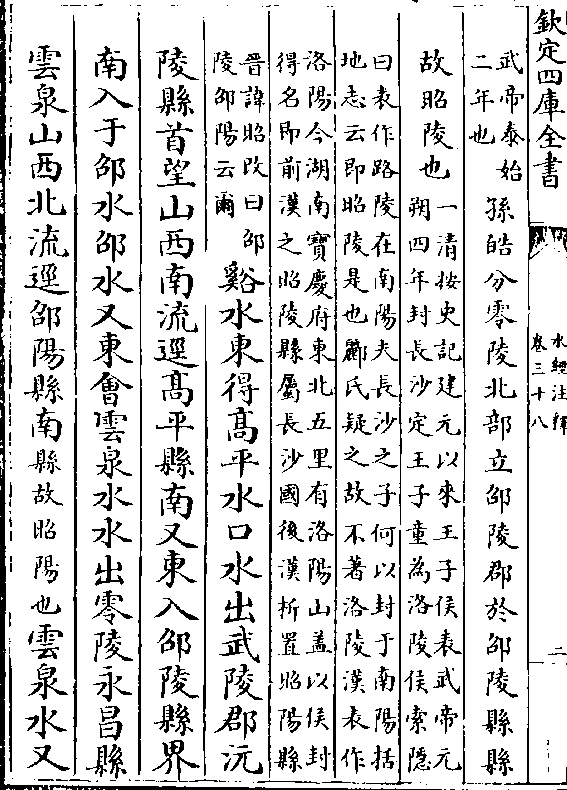 欽定四庫全書
水經注釋
卷三十八
二
武帝泰始
二年也
孫皓分零陵北部立邵陵郡於邵陵縣縣
故昭陵也
一清按史記建元以來王子侯表武帝元
朔四年封長沙定王子童為洛陵侯索隱
曰表作路陵在南陽夫長沙之子何以封于南陽括
地志云即昭陵是也酈氏疑之故不著洛陵漢表作
洛陽今湖南寶慶府東北五里有洛陽山蓋以侯封
得名即前漢之昭陵縣屬長沙國後漢析置昭陽縣
晉諱昭改曰邵
陵邵陽云爾
谿水東得髙平水口水出武陵郡沅
陵縣首望山西南流逕髙平縣南又東入邵陵縣界
南入于邵水邵水又東會雲泉水水出零陵永昌縣
雲泉山西北流逕邵陽縣南縣故昭陽也雲泉水又